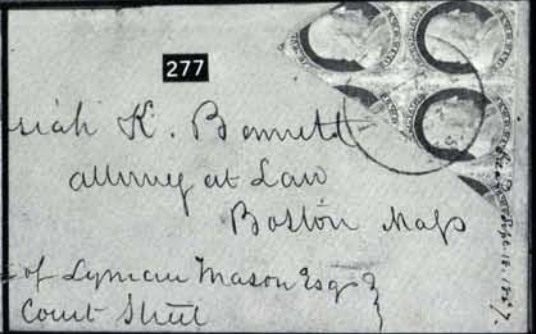 277
siah K. Bennett
attorney at Law
Boston Maſs
of Lyman Mason Esqr
Court Street
Sept. 18. 1857.